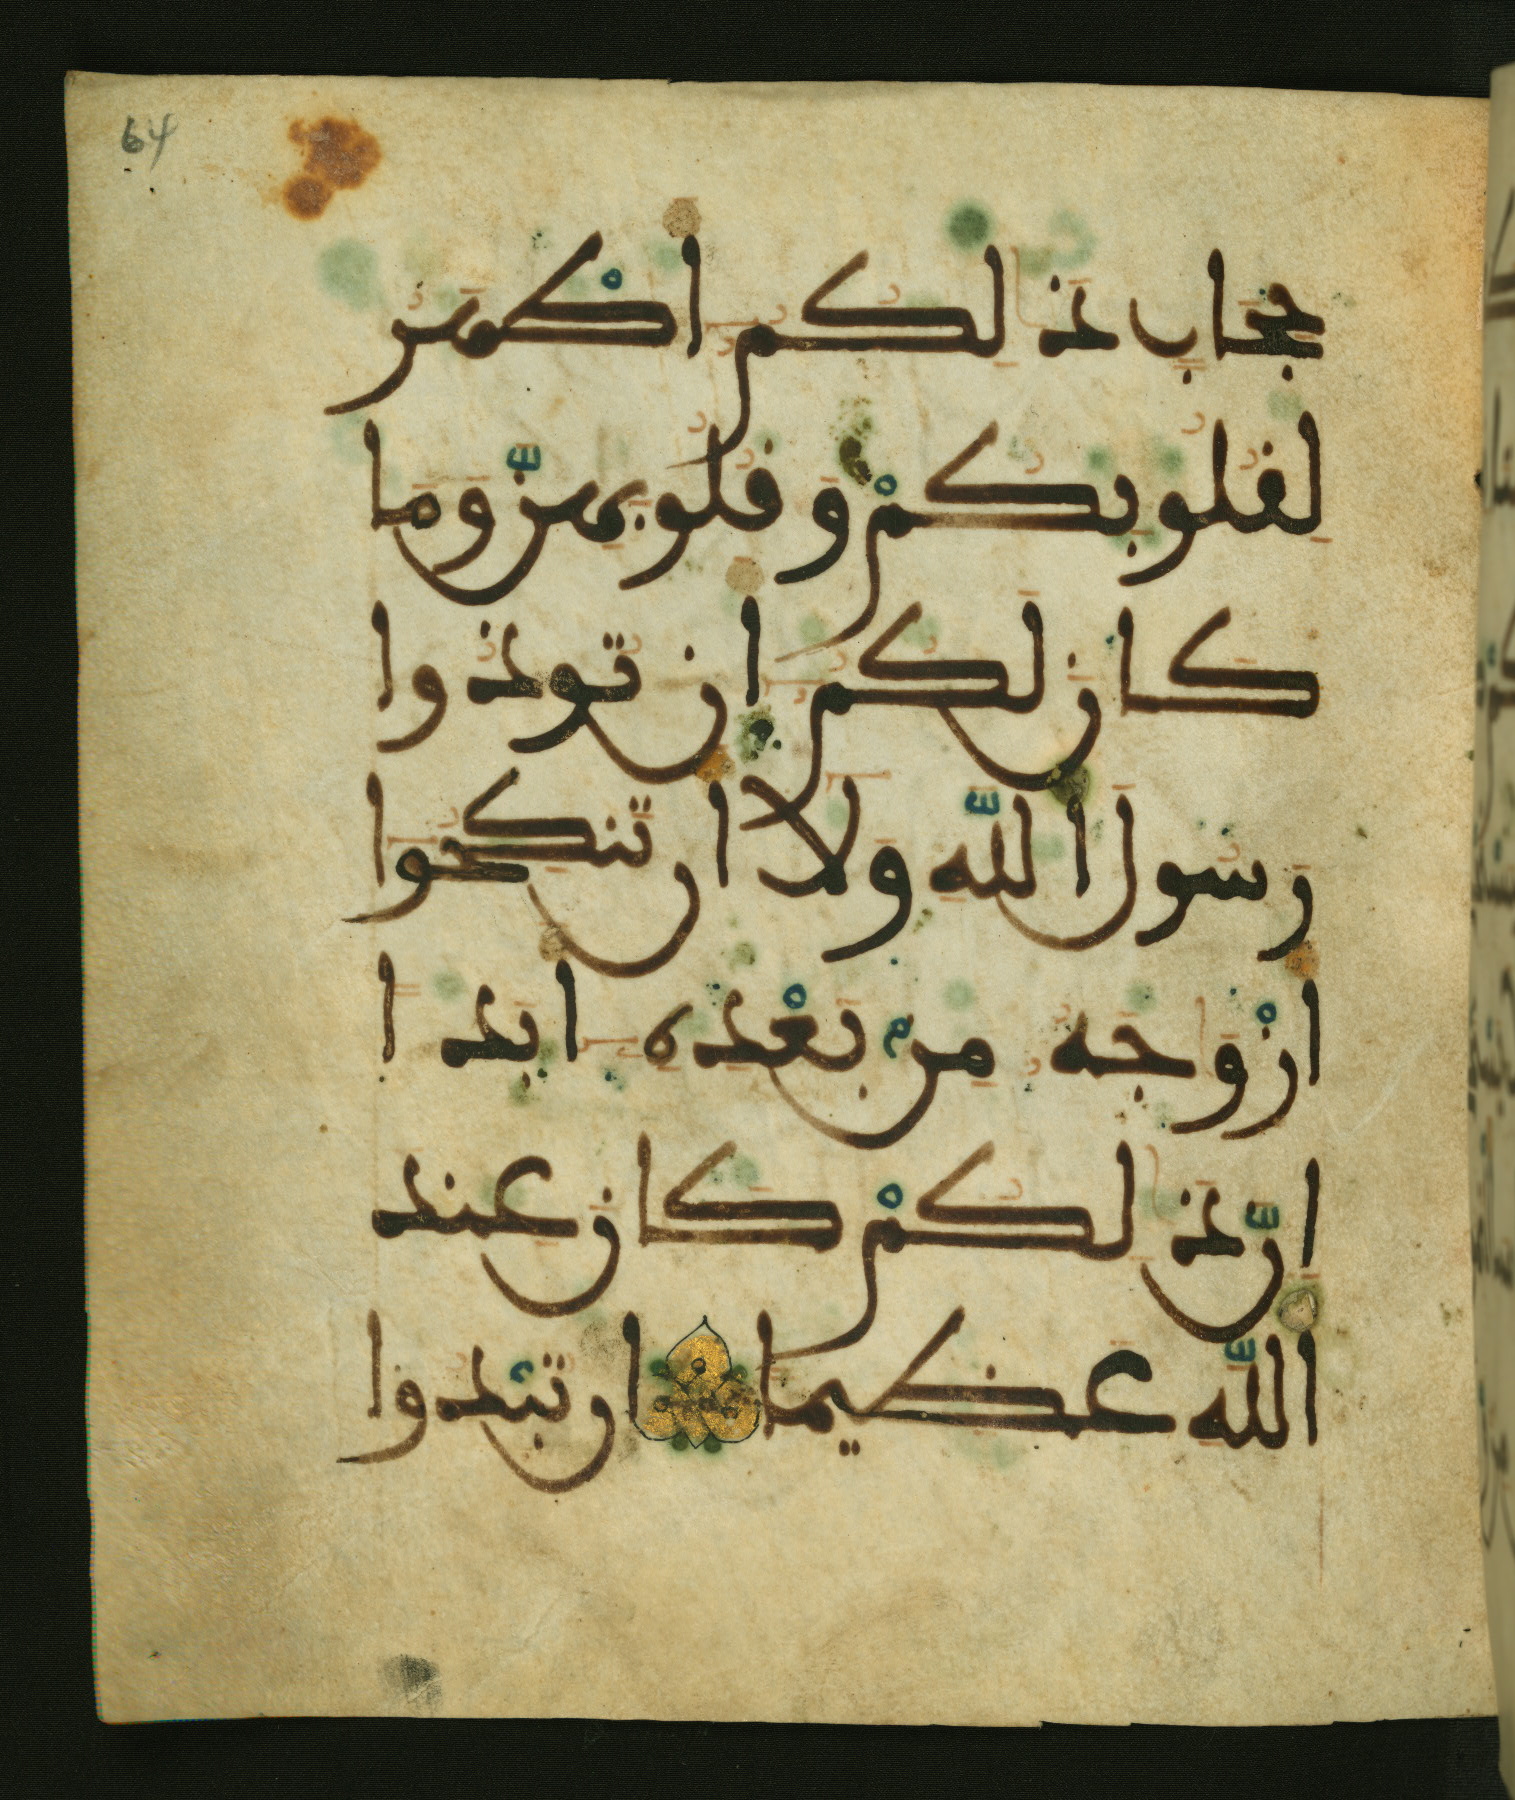 64
حِجَابٍ ذَٰلِكُمُ أَطْهَرُ
لِقُلُوبِكُمْ وَقُلُوبِهِنَّ وَمَا
كَانَ لَكُمُ أَن تُوذُوا
رَسُولَ اللَّهِ وَلَا أَن تَنكِحُوا
أَزْوَٰجَهُ مِن بَعْدِهِ أَبَدًا
إِنَّ ذَٰلِكُمْ كَانَ عِندَ
اللَّهِ عَظِيمًا إِن تُبْدُوا